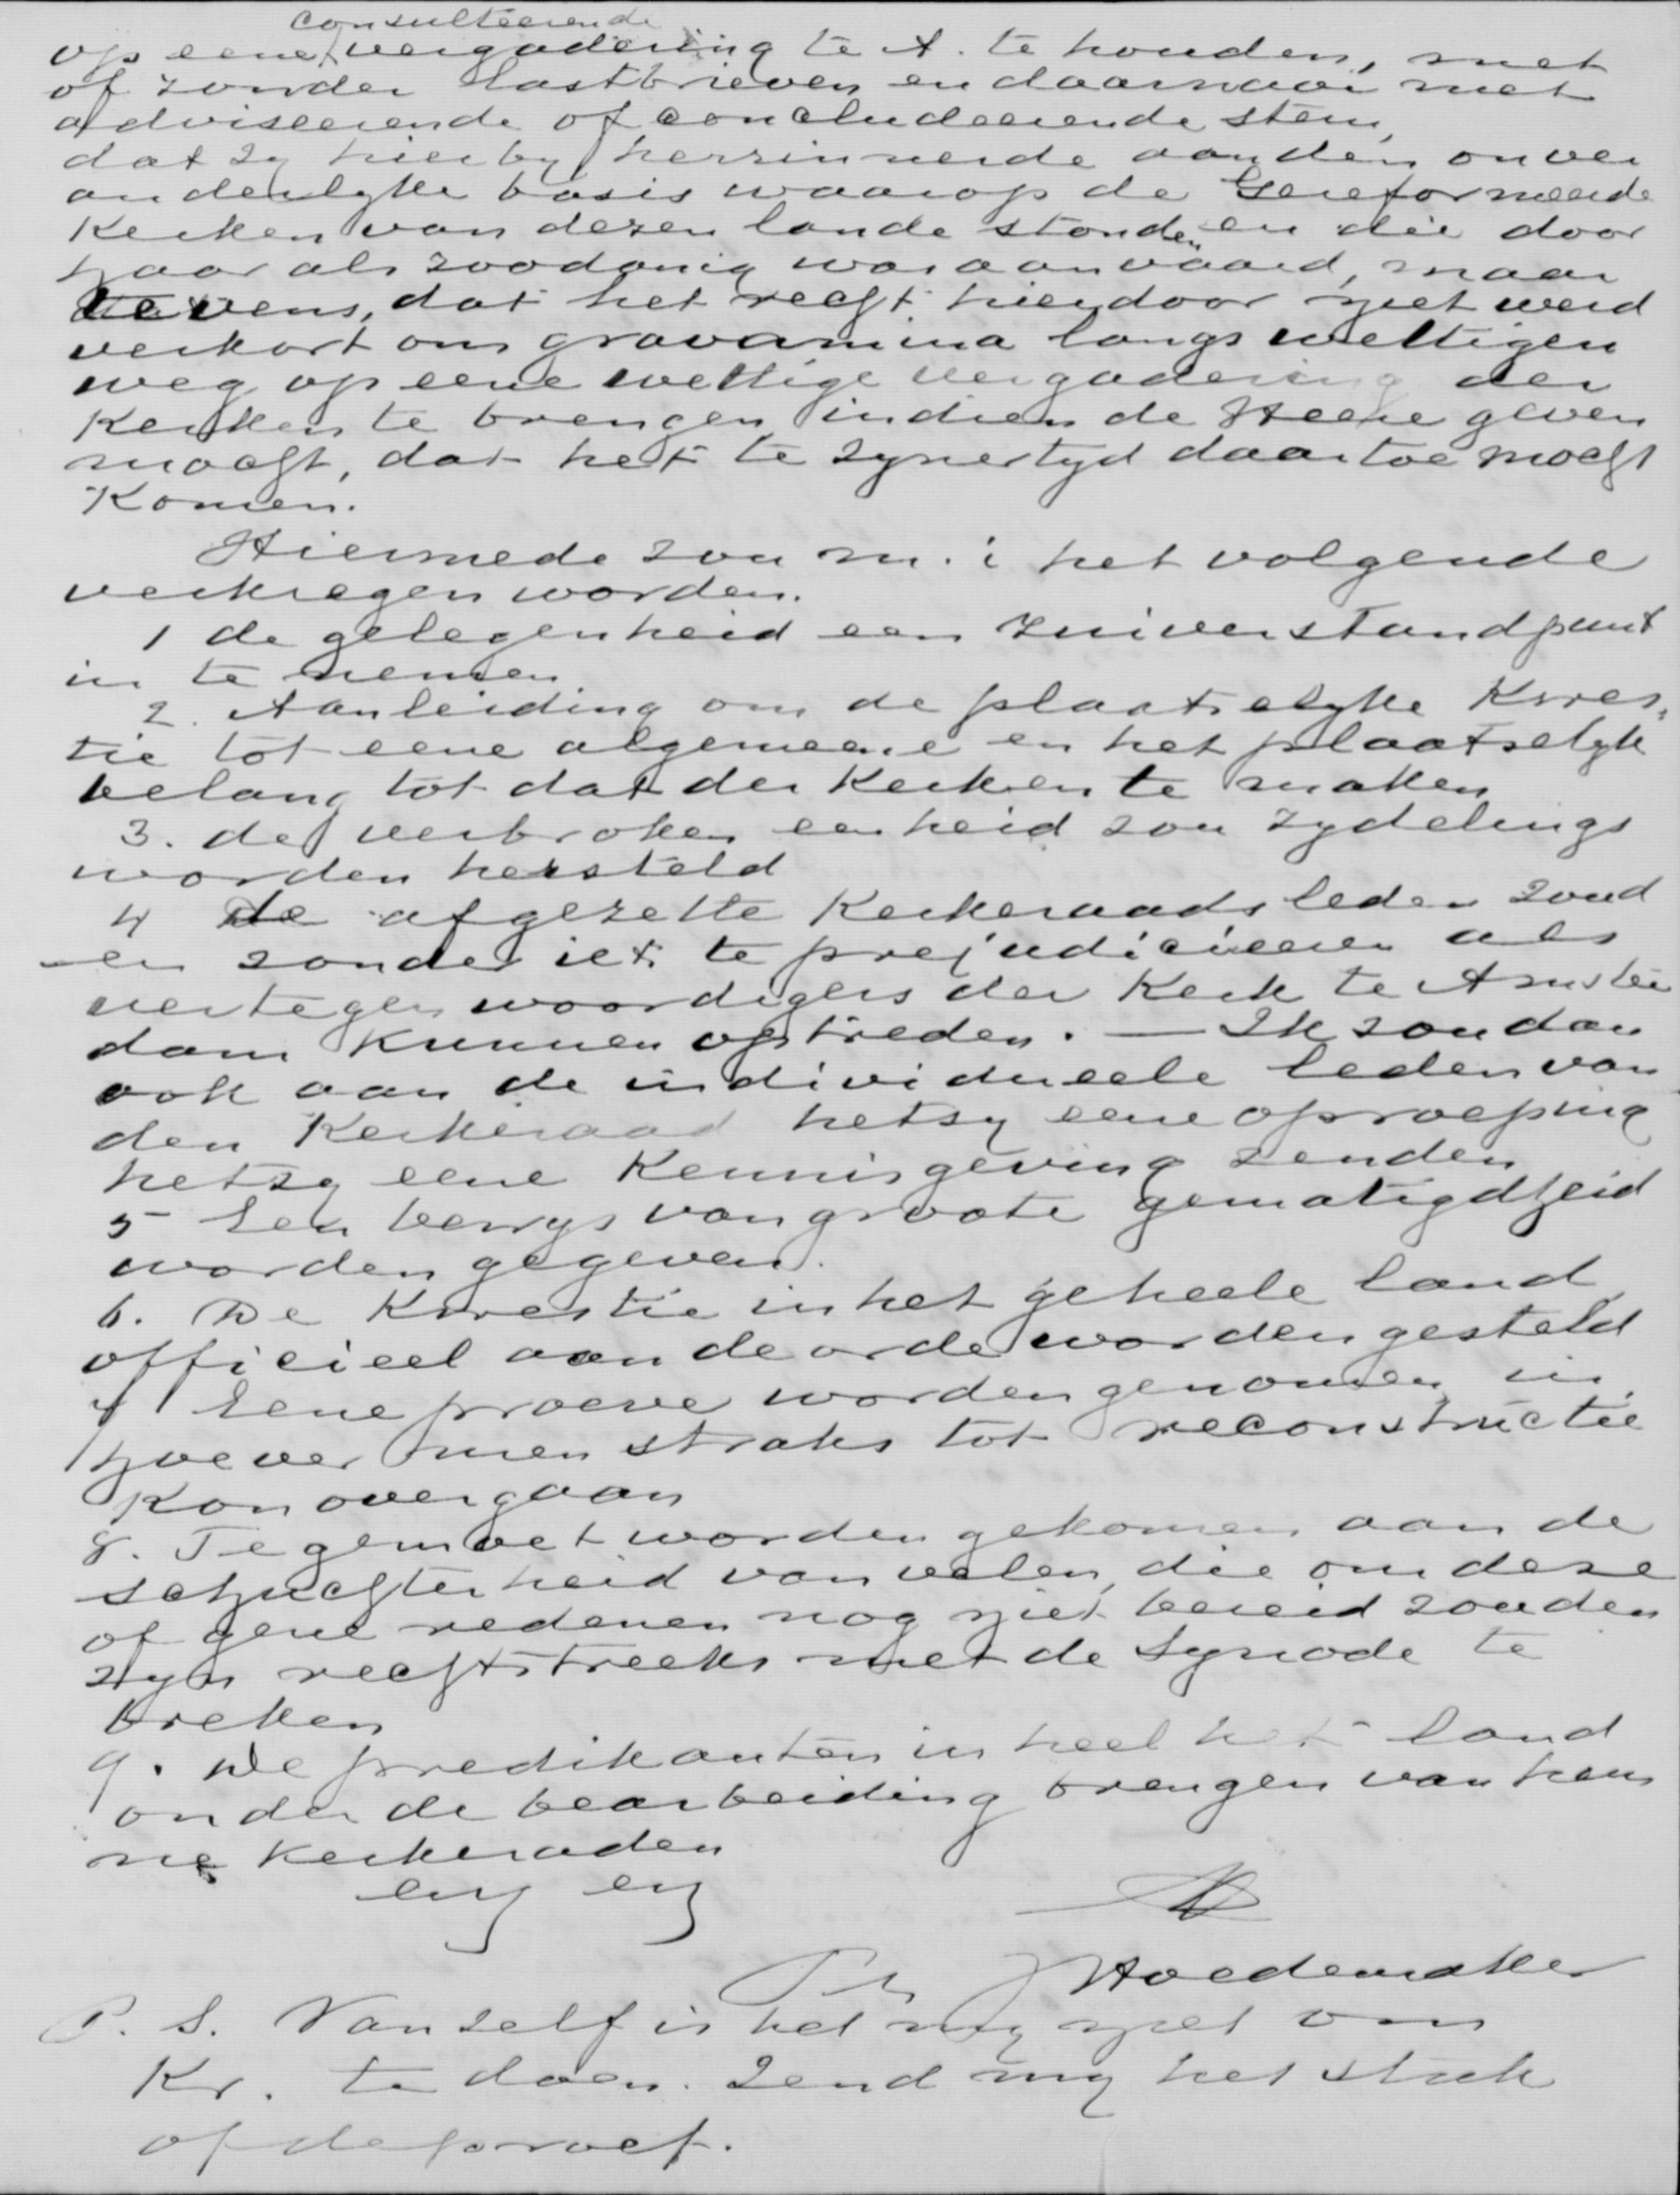 consulteerende
op eene vergadering te A. te houden, met
of zonder lastbrieven en daarnaar met
adviseerende of concludeerende stem,
dat zy hierby herinnerde aan den onver
anderlyke basis waarop de Gereformeerde
Kerken van dezen lande stonden en die door
haar als zoodanig was aanvaard, maar
tevens, dat het recht hierdoor niet werd
verkort om gravamina langs wettigen
weg op eene wettige vergadering der
Kerken te brengen indien de Heere geven
mocht, dat het te zynertyd daartoe mocht
Komen.
Hiermede zou m. i het volgende
verkregen worden.
1 de gelegenheid een zuiver standpunt
in te nemen
2. Aanleiding om de plaatselyke Kwes,
tie tot eene algemeene en het plaatselyk
belang tot dat der Kerken te maken
3. de verbroken eenheid zou zydelings
worden hersteld
4 de afgezette Kerkeraadsleden zoud
en zonder iets te prejudicieeren als
vertegenwoordigers der Kerk te Amster
dam Kunnen optreden. — Ik zou dan
ook aan de individueele leden van
den Kerkeraad hetzy eene oproeping
hetzy eene Kennisgeving zenden
5 Een bewys van groote gematigdheid
worden gegeven.
6. De Kwestie in het geheele land
officieel aan de orde worden gesteld
7 Eene proeve worden genomen in,
hoever men straks tot reconstructie
Kon overgaan
8. Tegemoet worden gekomen aan de
schuchterheid van velen, die om deze
of gene redenen nog niet bereid zouden
zyn rechtstreeks met de Synode te
breken
9. De predikanten in heel het land
onder de bearbeiding brengen van hun
ne Kerkeraden
enz enz
Ph J Hoedemaker
P. S. Vanzelf is het my niet om
Kr. te doen. Zend my het stuk
of de proef.